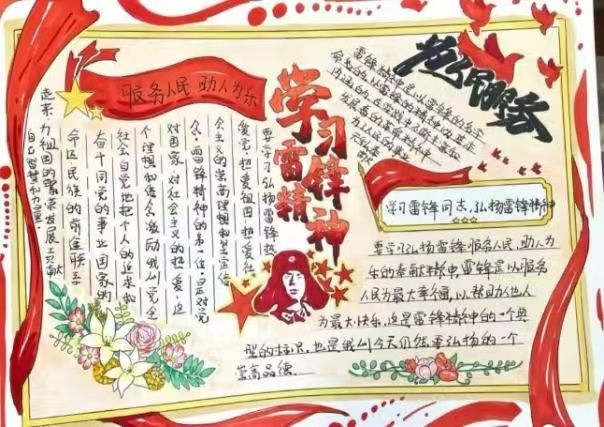 服务人民 助人为乐
学习
雷锋
精神
为人民服务
雷锋精神是以雷锋的名字
命名的以雷锋的精神为基本
内涵的、在实践中不断丰富和
发展着的革命精神
为人民的事业
无私奉献
要学习弘扬雷锋热
爱党热爱祖国热爱社
会主义的崇高理想和坚定信
念,雷锋精神的第一位是对党
对国家、对社会主义的热爱,这
个理想和信念激励我们党全
社会自觉地把个人的追求和
奋斗同党的事业国家的
命运民族的前途联系
起来,为祖国的繁荣发展贡献
自己智慧和力量
学习雷锋同志,弘扬雷锋精神
要学习弘扬雷锋服务人民,助人为
乐的奉献精神,雷锋是以服务
人民为最大幸福,以帮助他人
为最大快乐,这是雷锋精神中的一个典
型的标识,也是我们今天仍然要弘扬的一个
崇高品德.